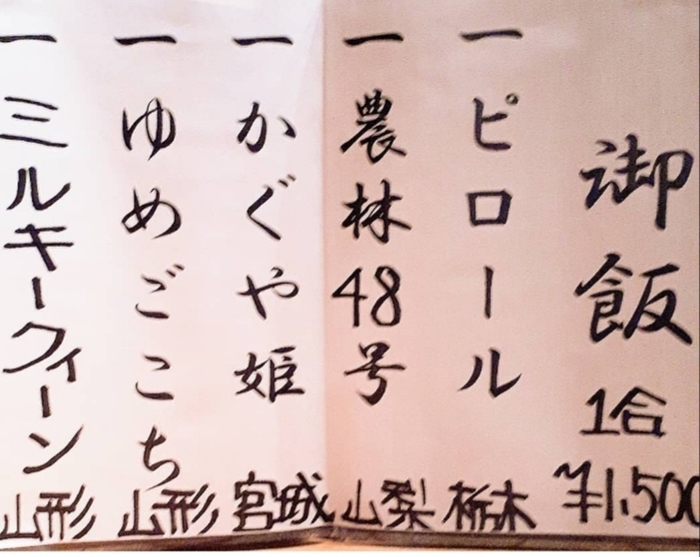 御飯 1合 ¥1,500
一 ピロール 栃木
一 農林48号 山梨
一 かぐや姫 宮城
一 ゆめごこち 山形
一 ミルキークィーン 山形